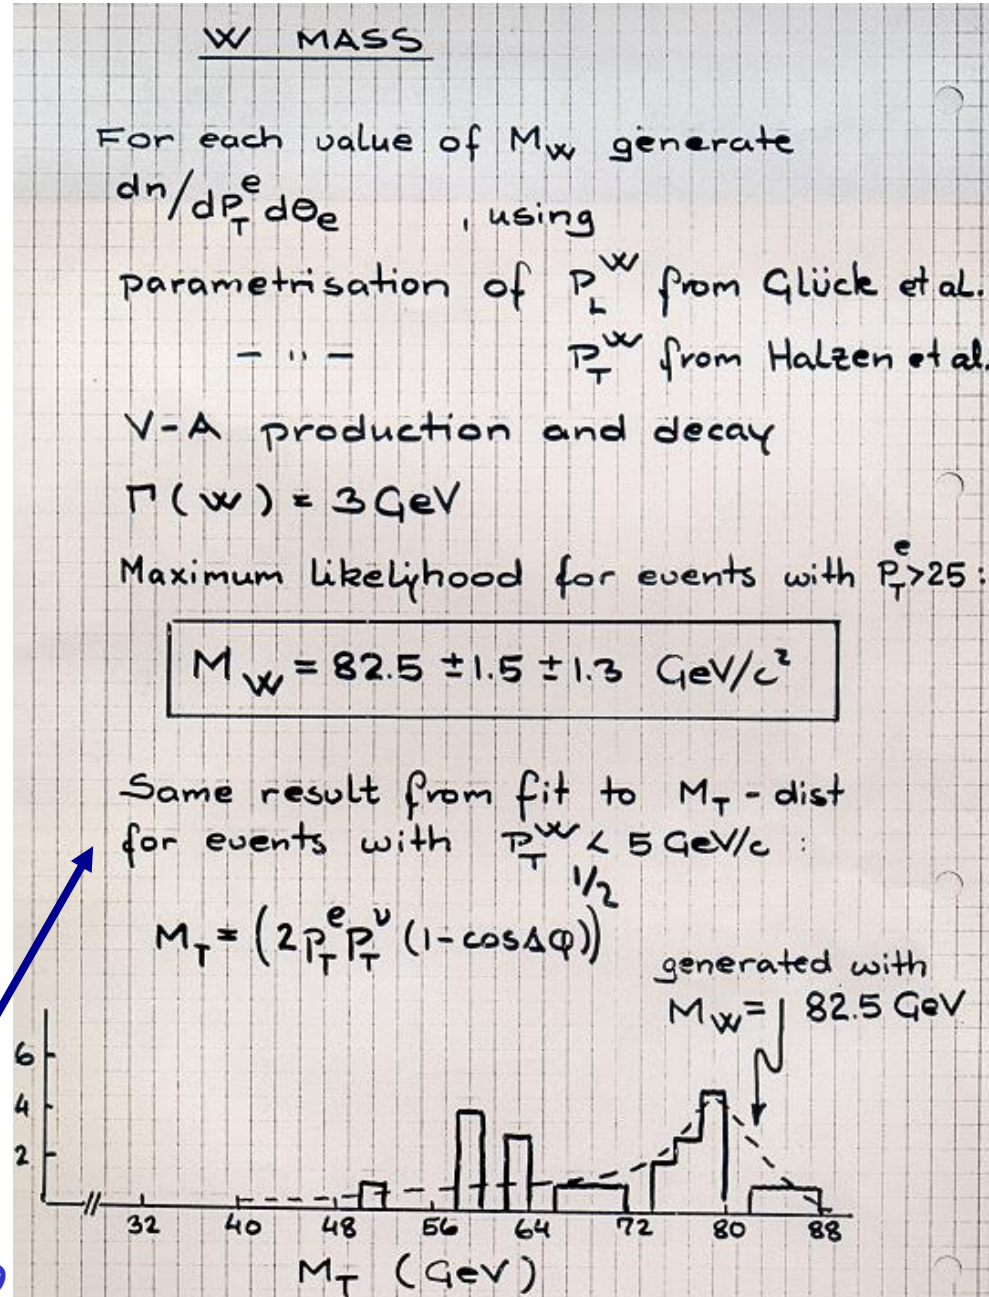 W MASS
For each value of M_W generate
dn/dP_T^e dθ_e , using
parametrisation of P_L^W from Glück et al.
- " - P_T^W from Halzen et al.
V-A production and decay
Γ(W) = 3 GeV
Maximum likelyhood for events with P_T^e>25:
M_W = 82.5 ±1.5 ±1.3 GeV/c²
Same result from fit to M_T - dist
for events with P_T^W < 5 GeV/c :
M_T = (2P_T^e P_T^ν (1-cosΔφ))^1/2
generated with
M_W = 82.5 GeV
6
4
2
32 40 48 56 64 72 80 88
M_T (GeV)